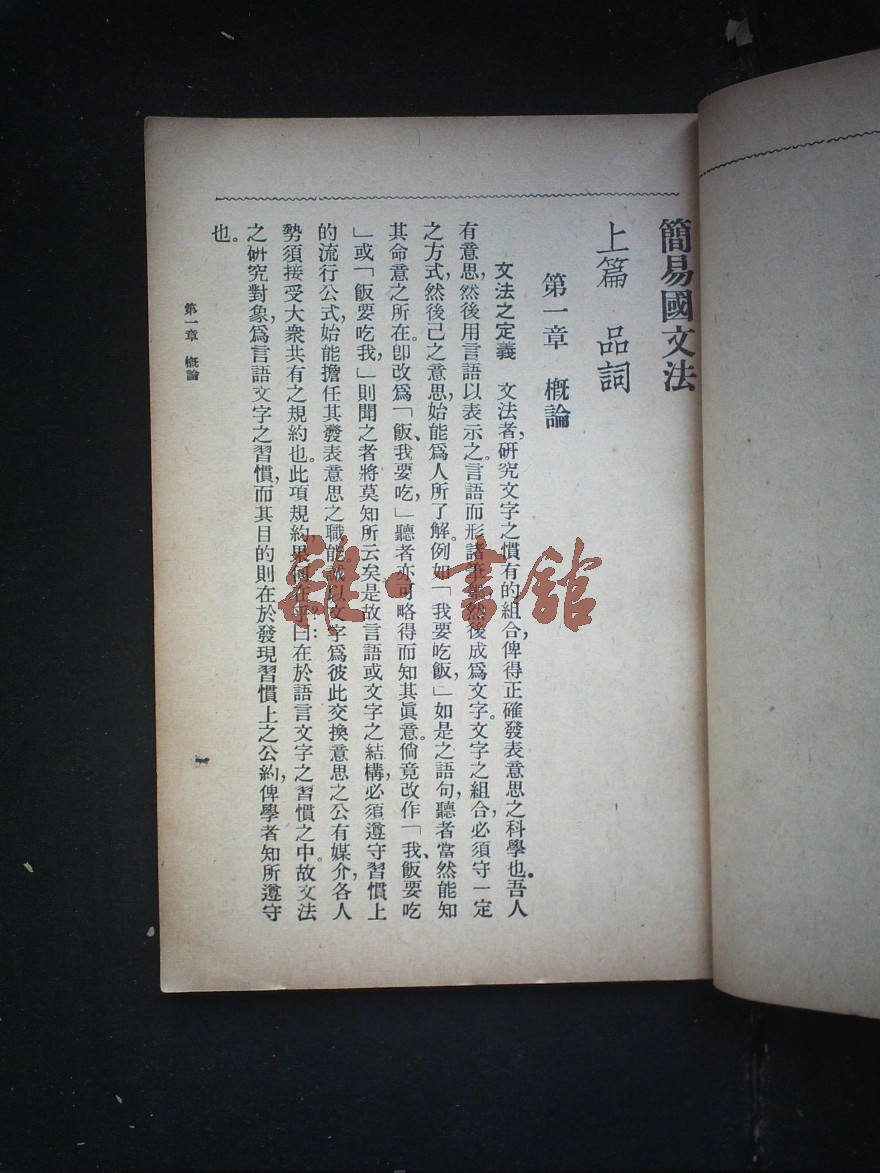 簡易國文法
上篇 品詞
第一章 概論
文法之定義 文法者，硏究文字之慣有的組合，俾得正確發表意思之科學也。吾人
有意思，然後用言語以表示之。言語而形諸筆然後成爲文字。文字之組合，必須守一定
之方式，然後己之意思，始能爲人所了解。例如「我要吃飯，」如是之語句，聽者當然能知
其命意之所在。卽改爲「飯、我要吃，」聽者亦可略得而知其眞意。倘竟改作「我、飯要吃
」或「飯要吃我，」則聞之者將莫知所云矣。是故言語或文字之結構，必須遵守習慣上
的流行公式，始能擔任其發表意思之職能。誠以文字爲彼此交換意思之公有媒介，各人
勢須接受大衆共有之規約也。此項規約，果何在乎？曰：在於語言文字之習慣之中。故文法
之硏究對象，爲言語文字之習慣，而其目的則在於發現習慣上之公約，俾學者知所遵守
也。
第一章 概論
一
雜·書館